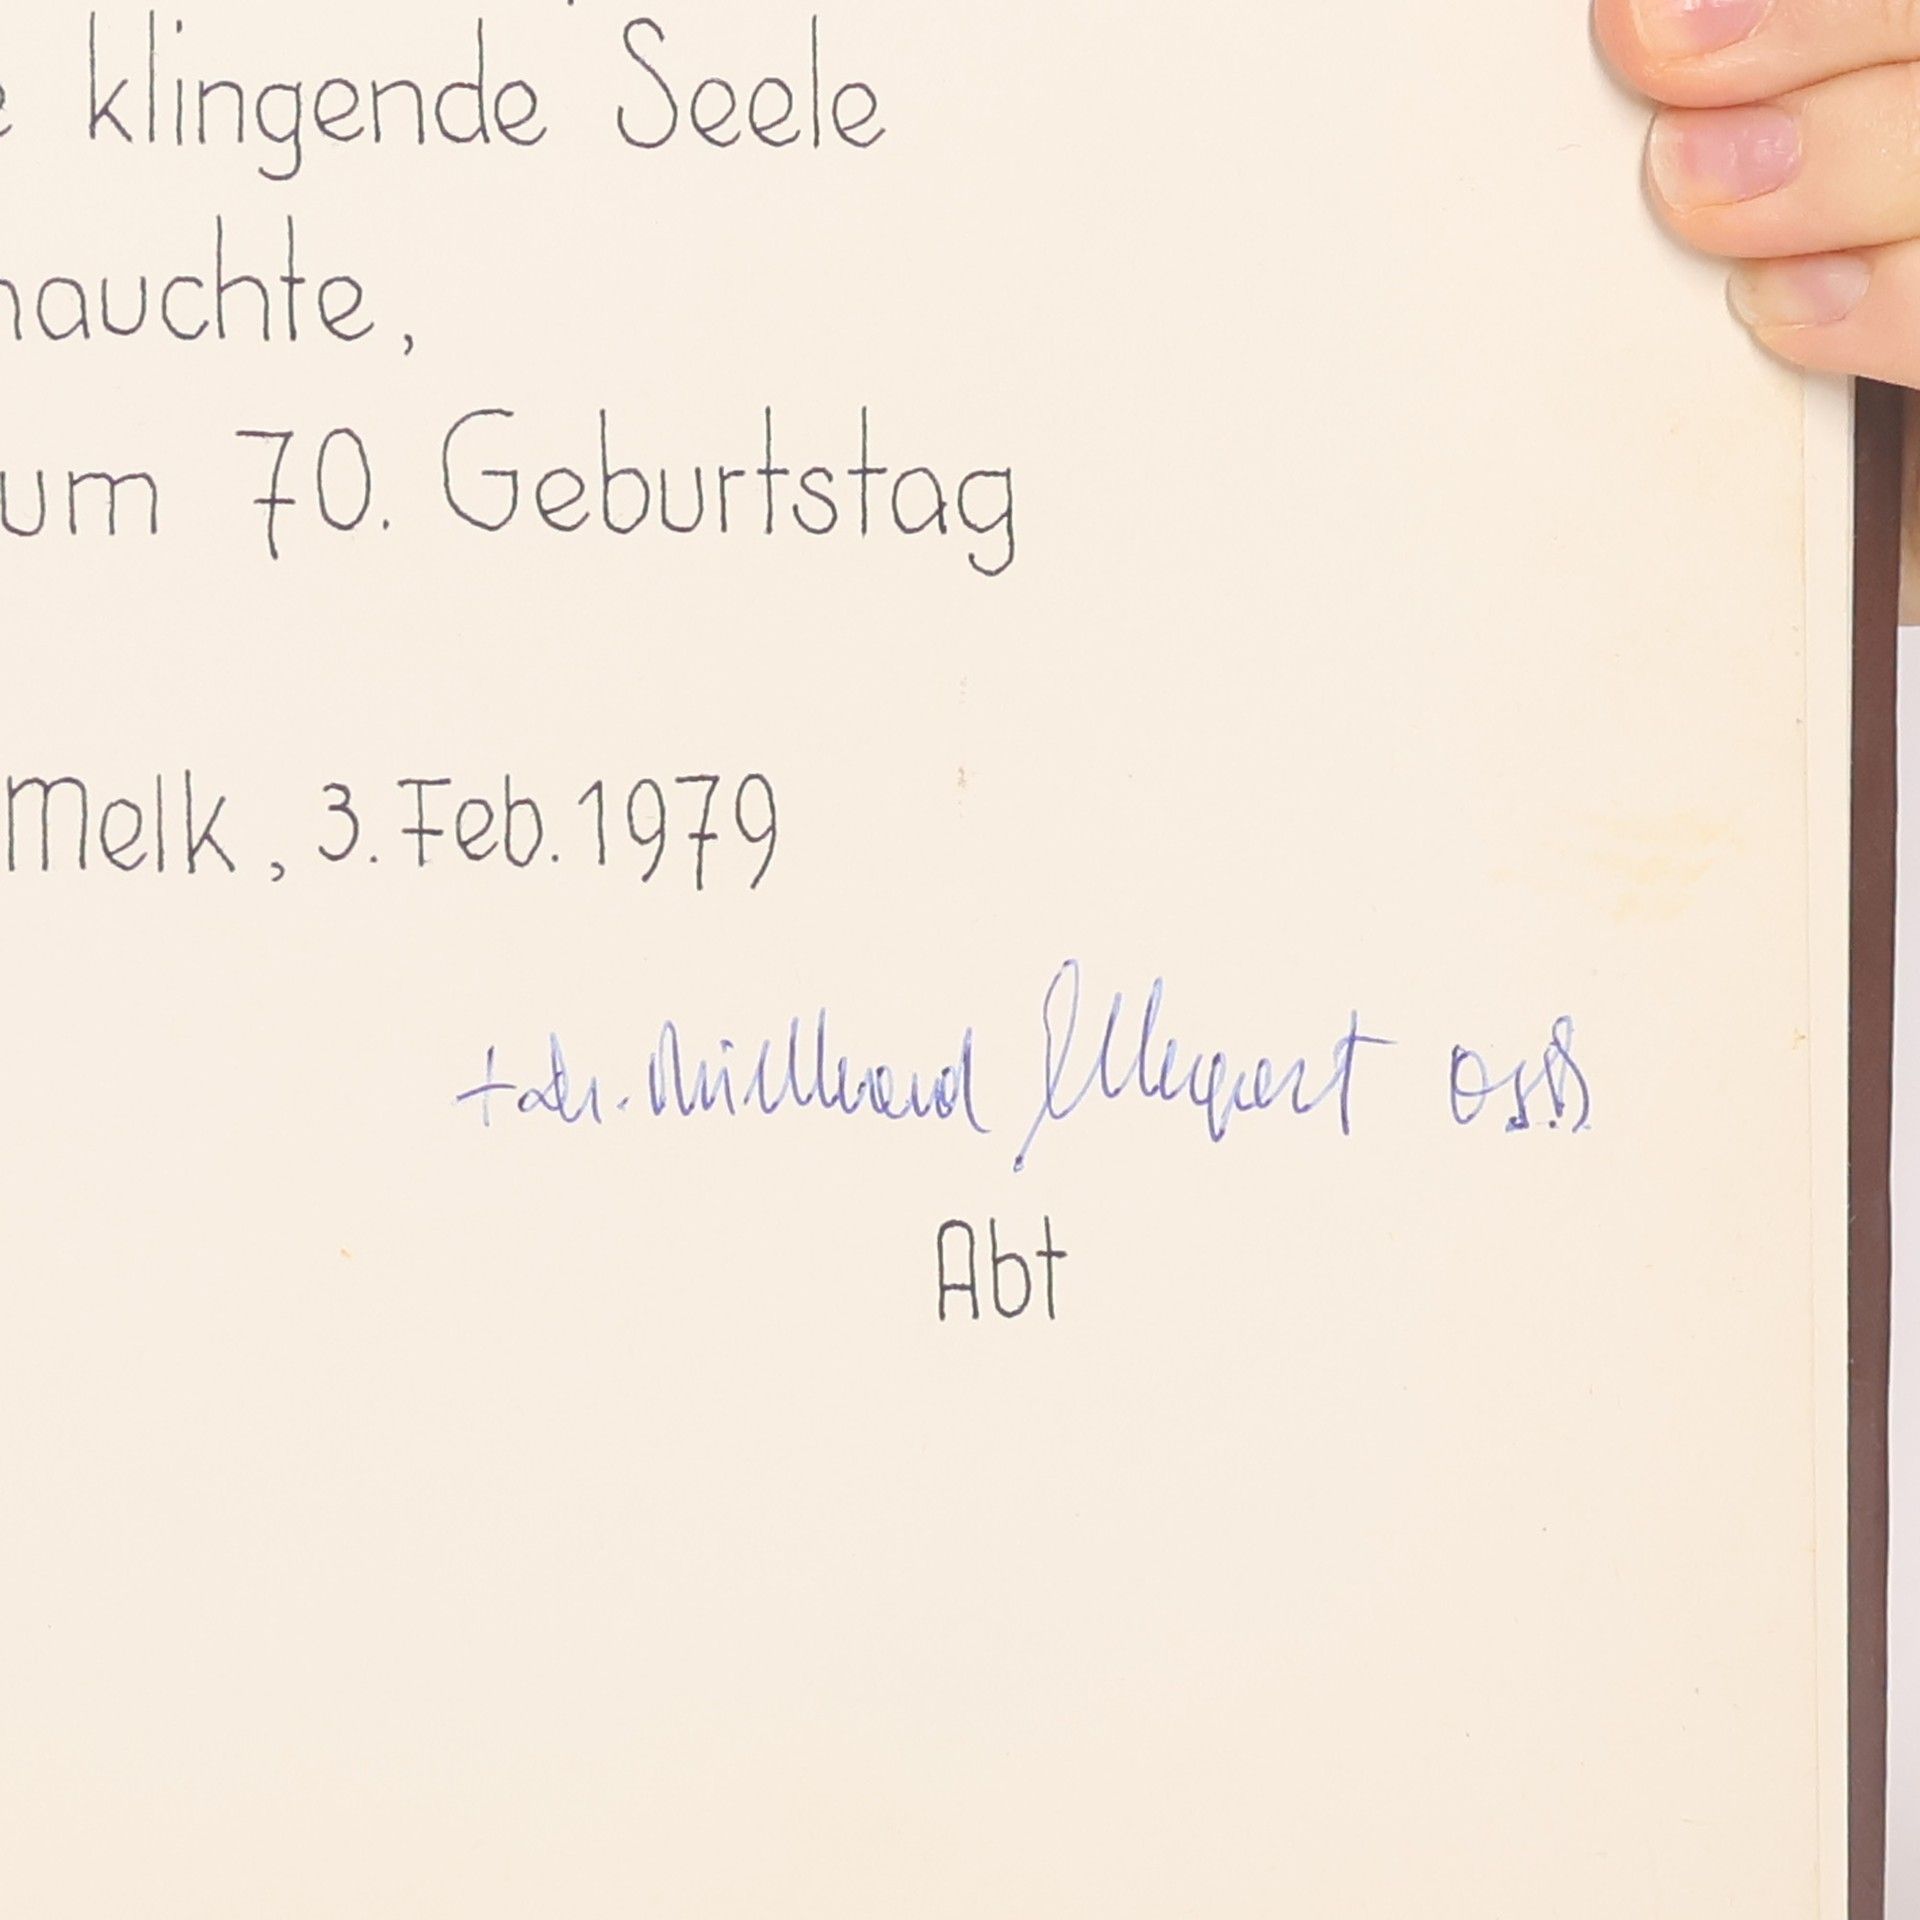 klingende Seele
hauchte,
um 70. Geburtstag
Melk, 3. Feb. 1979
+ Dr. Burkhard Ellegast OSB
Abt